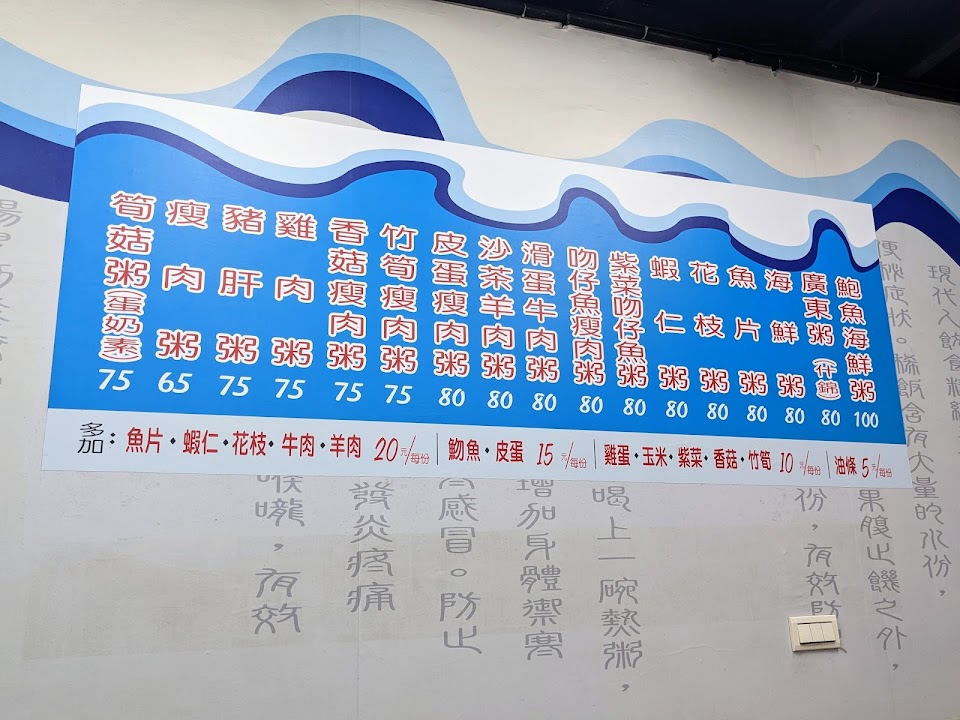 鮑魚海鮮粥 100
廣東粥(什錦) 80
海鮮粥 80
魚片粥 80
花枝粥 80
蝦仁粥 80
紫菜吻仔魚粥 80
吻仔魚瘦肉粥 80
滑蛋牛肉粥 80
沙茶羊肉粥 80
皮蛋瘦肉粥 80
竹筍瘦肉粥 75
香菇瘦肉粥 75
雞肉粥 75
豬肝粥 75
瘦肉粥 65
筍菇粥(蛋奶素) 75
多加：魚片·蝦仁·花枝·牛肉·羊肉 20元/每份 | 魩魚·皮蛋 15元/每份 | 雞蛋·玉米·紫菜·香菇·竹筍 10元/每份 | 油條 5元/每份
現代人飲食
的水份，
稀飯含有大量
果腹止饑之外，
份，有效防
喝上一碗熱粥，
增加身體禦寒
感冒。防止
發炎疼痛
喉嚨，有效